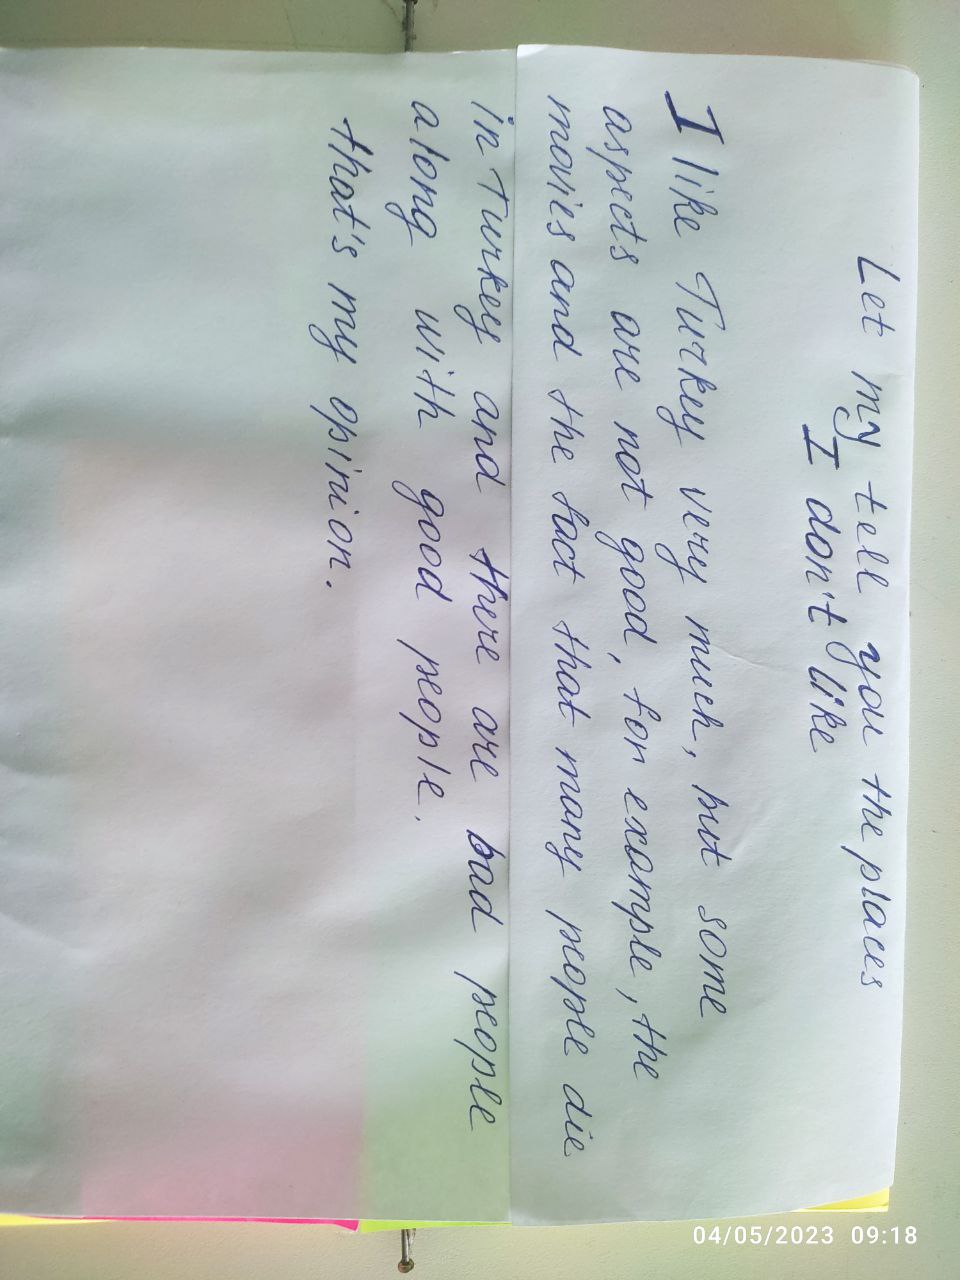 Let my tell you the places
I don't like
I like Turkey very much, but some
aspects are not good, for example, the
movies and the fact that many people die
in Turkey and there are bad people
along with good people.
that's my opinion.
04/05/2023 09:18